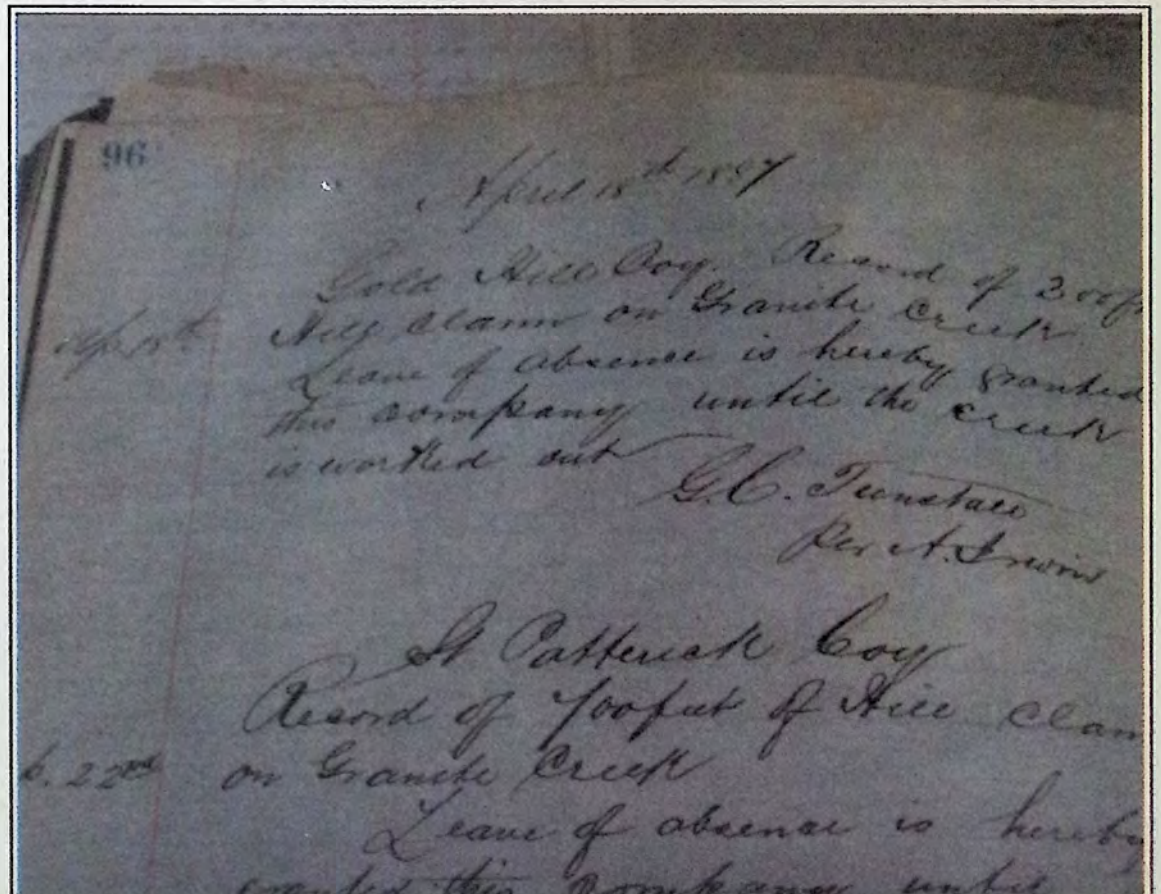 96
April 18th 1897
Gold Hill Coy. Record of 300f
Apr. 18th Hill claim on Granite Creek
Leave of absence is hereby granted
this company until the creek
is worked out
G. C. Tunstall
Per A. Irwin
St Patterick Coy
Record of 700 feet of Hill claim
22nd on Granite Creek
Leave of absence is hereby
granted this company until